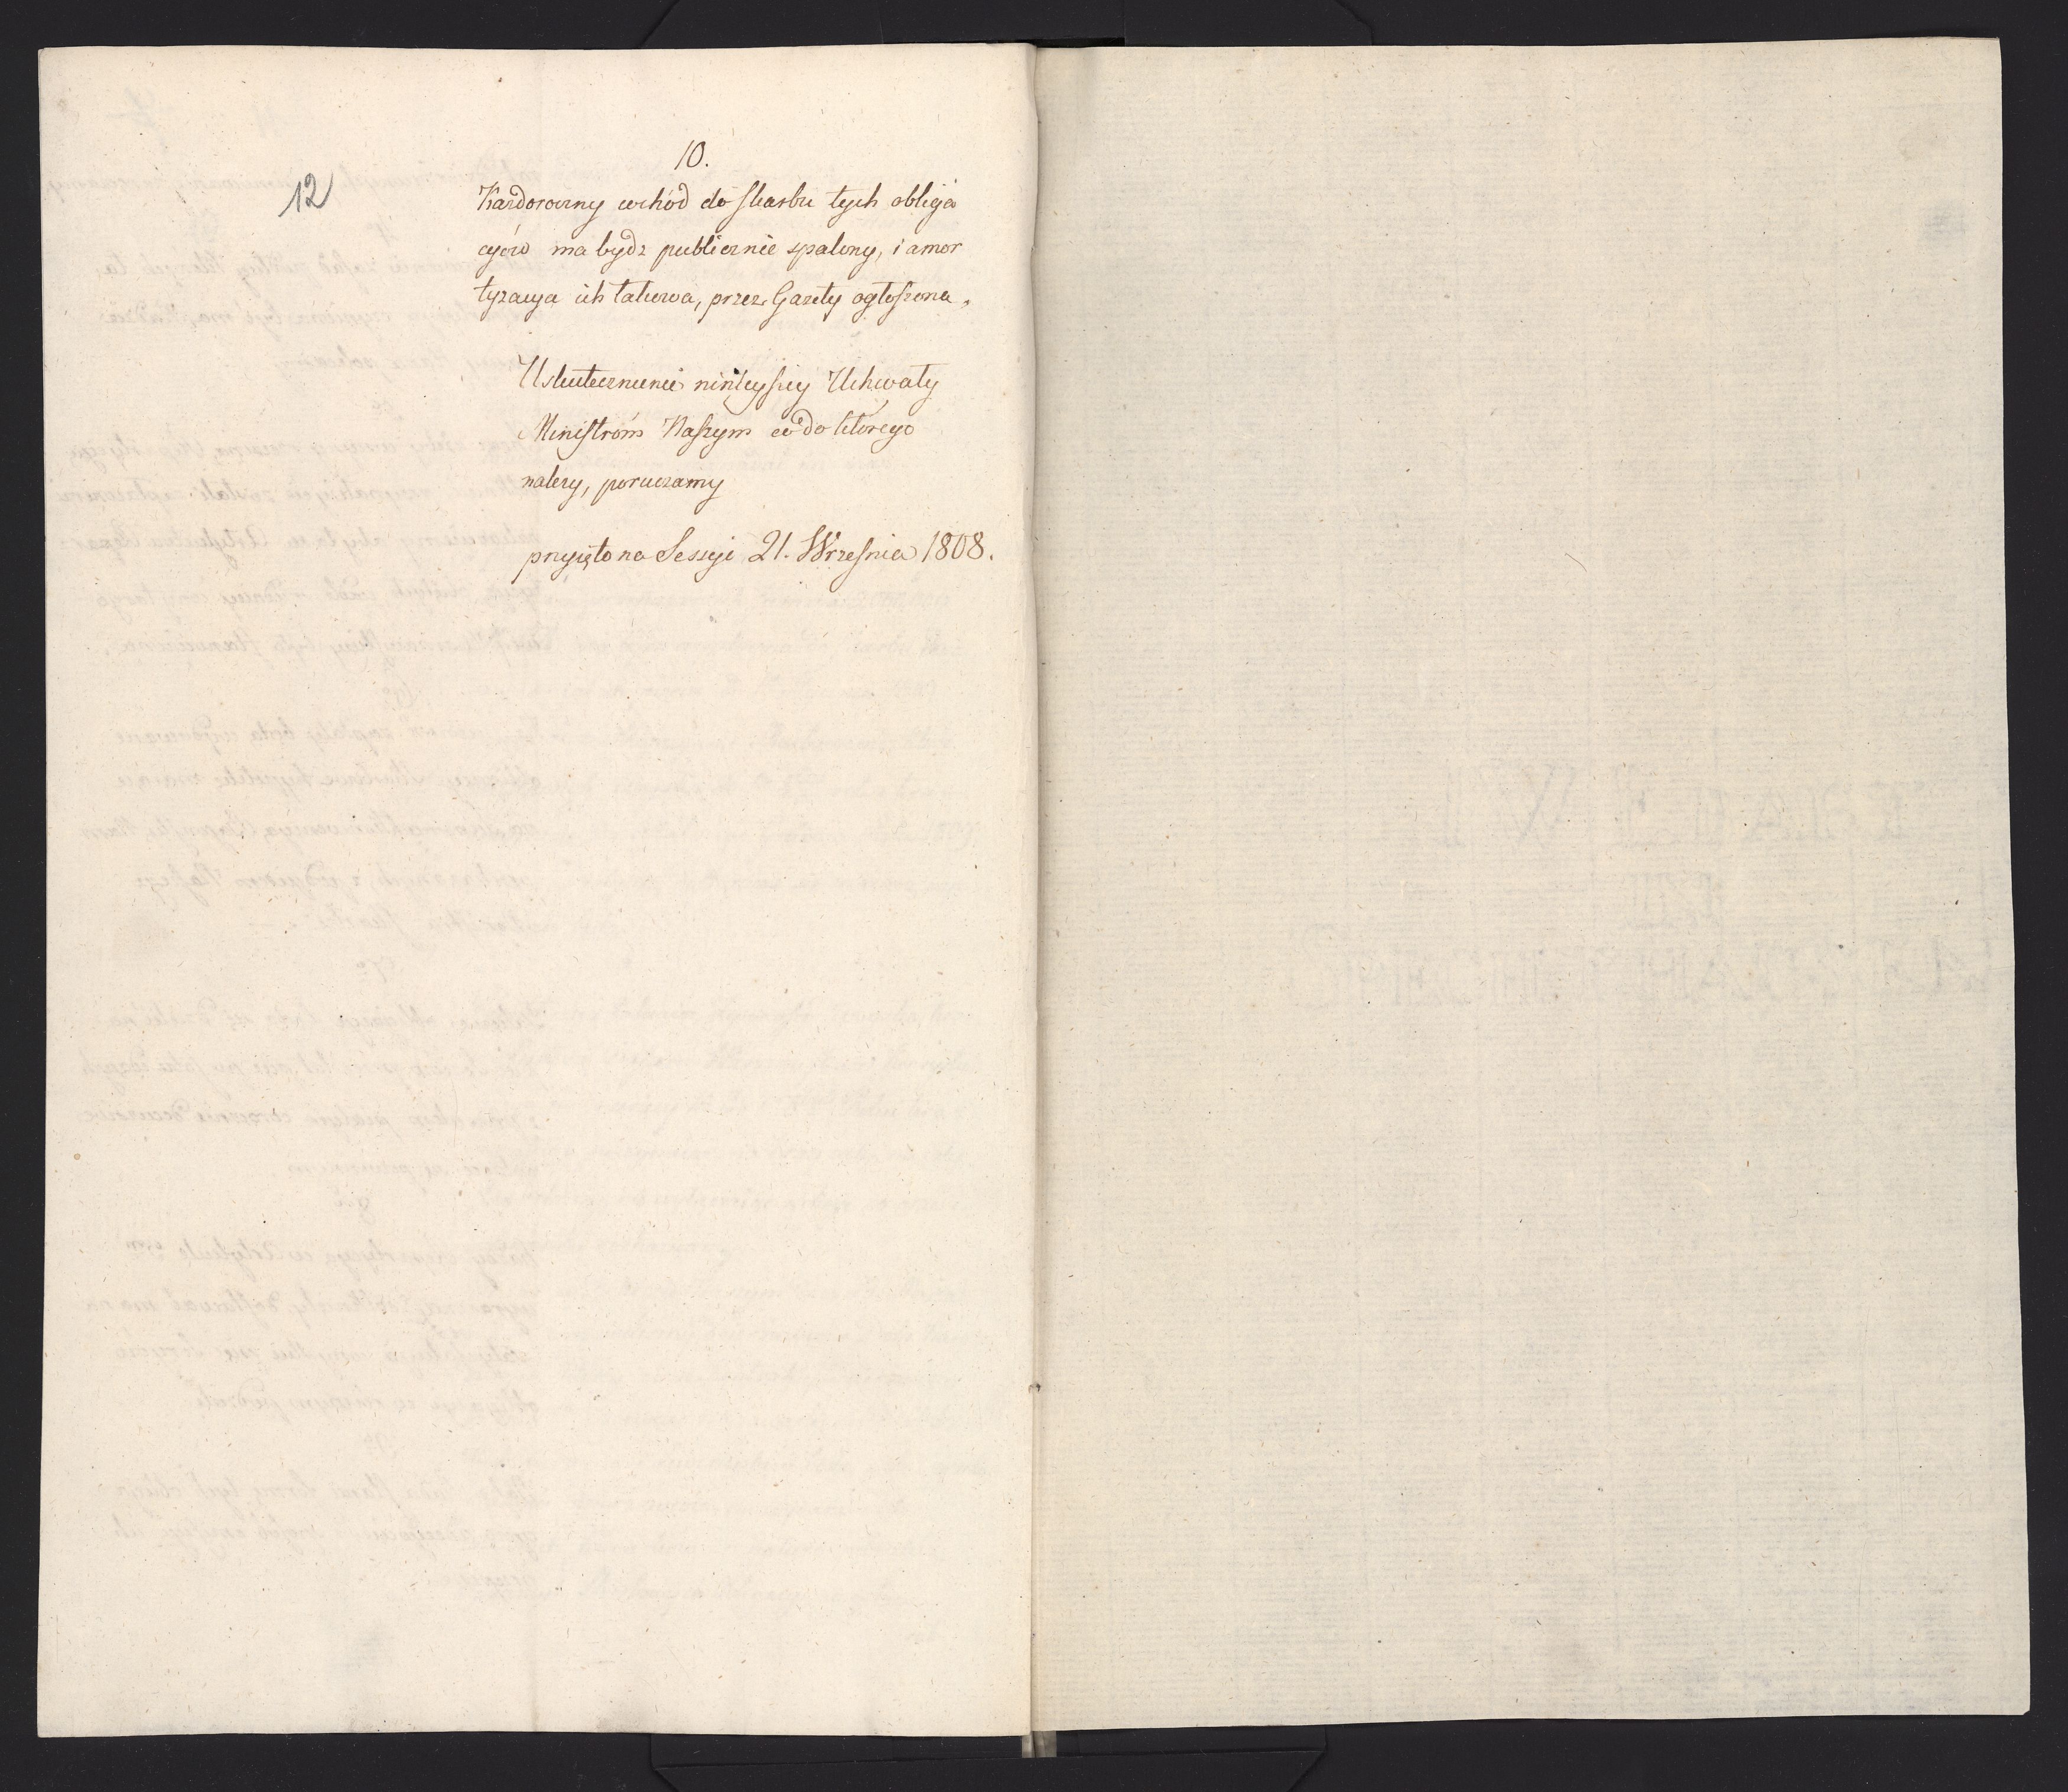 10.
12
Każdoroczny wchód do skarbu tych obliga
cyów ma bydz publicznie spalony, i amor
tyzacya ich takowa, przez Gazety ogłoszona.
Uskutecznienie ninieyszey Uchwały
Ministrom Naszym co do którego
należy, poruczamy
przyięto na Sessyi 21. Września 1808.